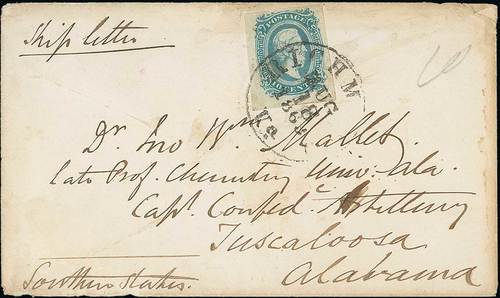 Ship letter
POSTAGE
TEN CENTS
RICHM
AUG
18
186
Va
10
Dr. Jno Wm Mallet.
late Prof. Chemistry Univ. Ala.
Capt. Confed. Artillery
Tuscaloosa
Alabama
Southern States.